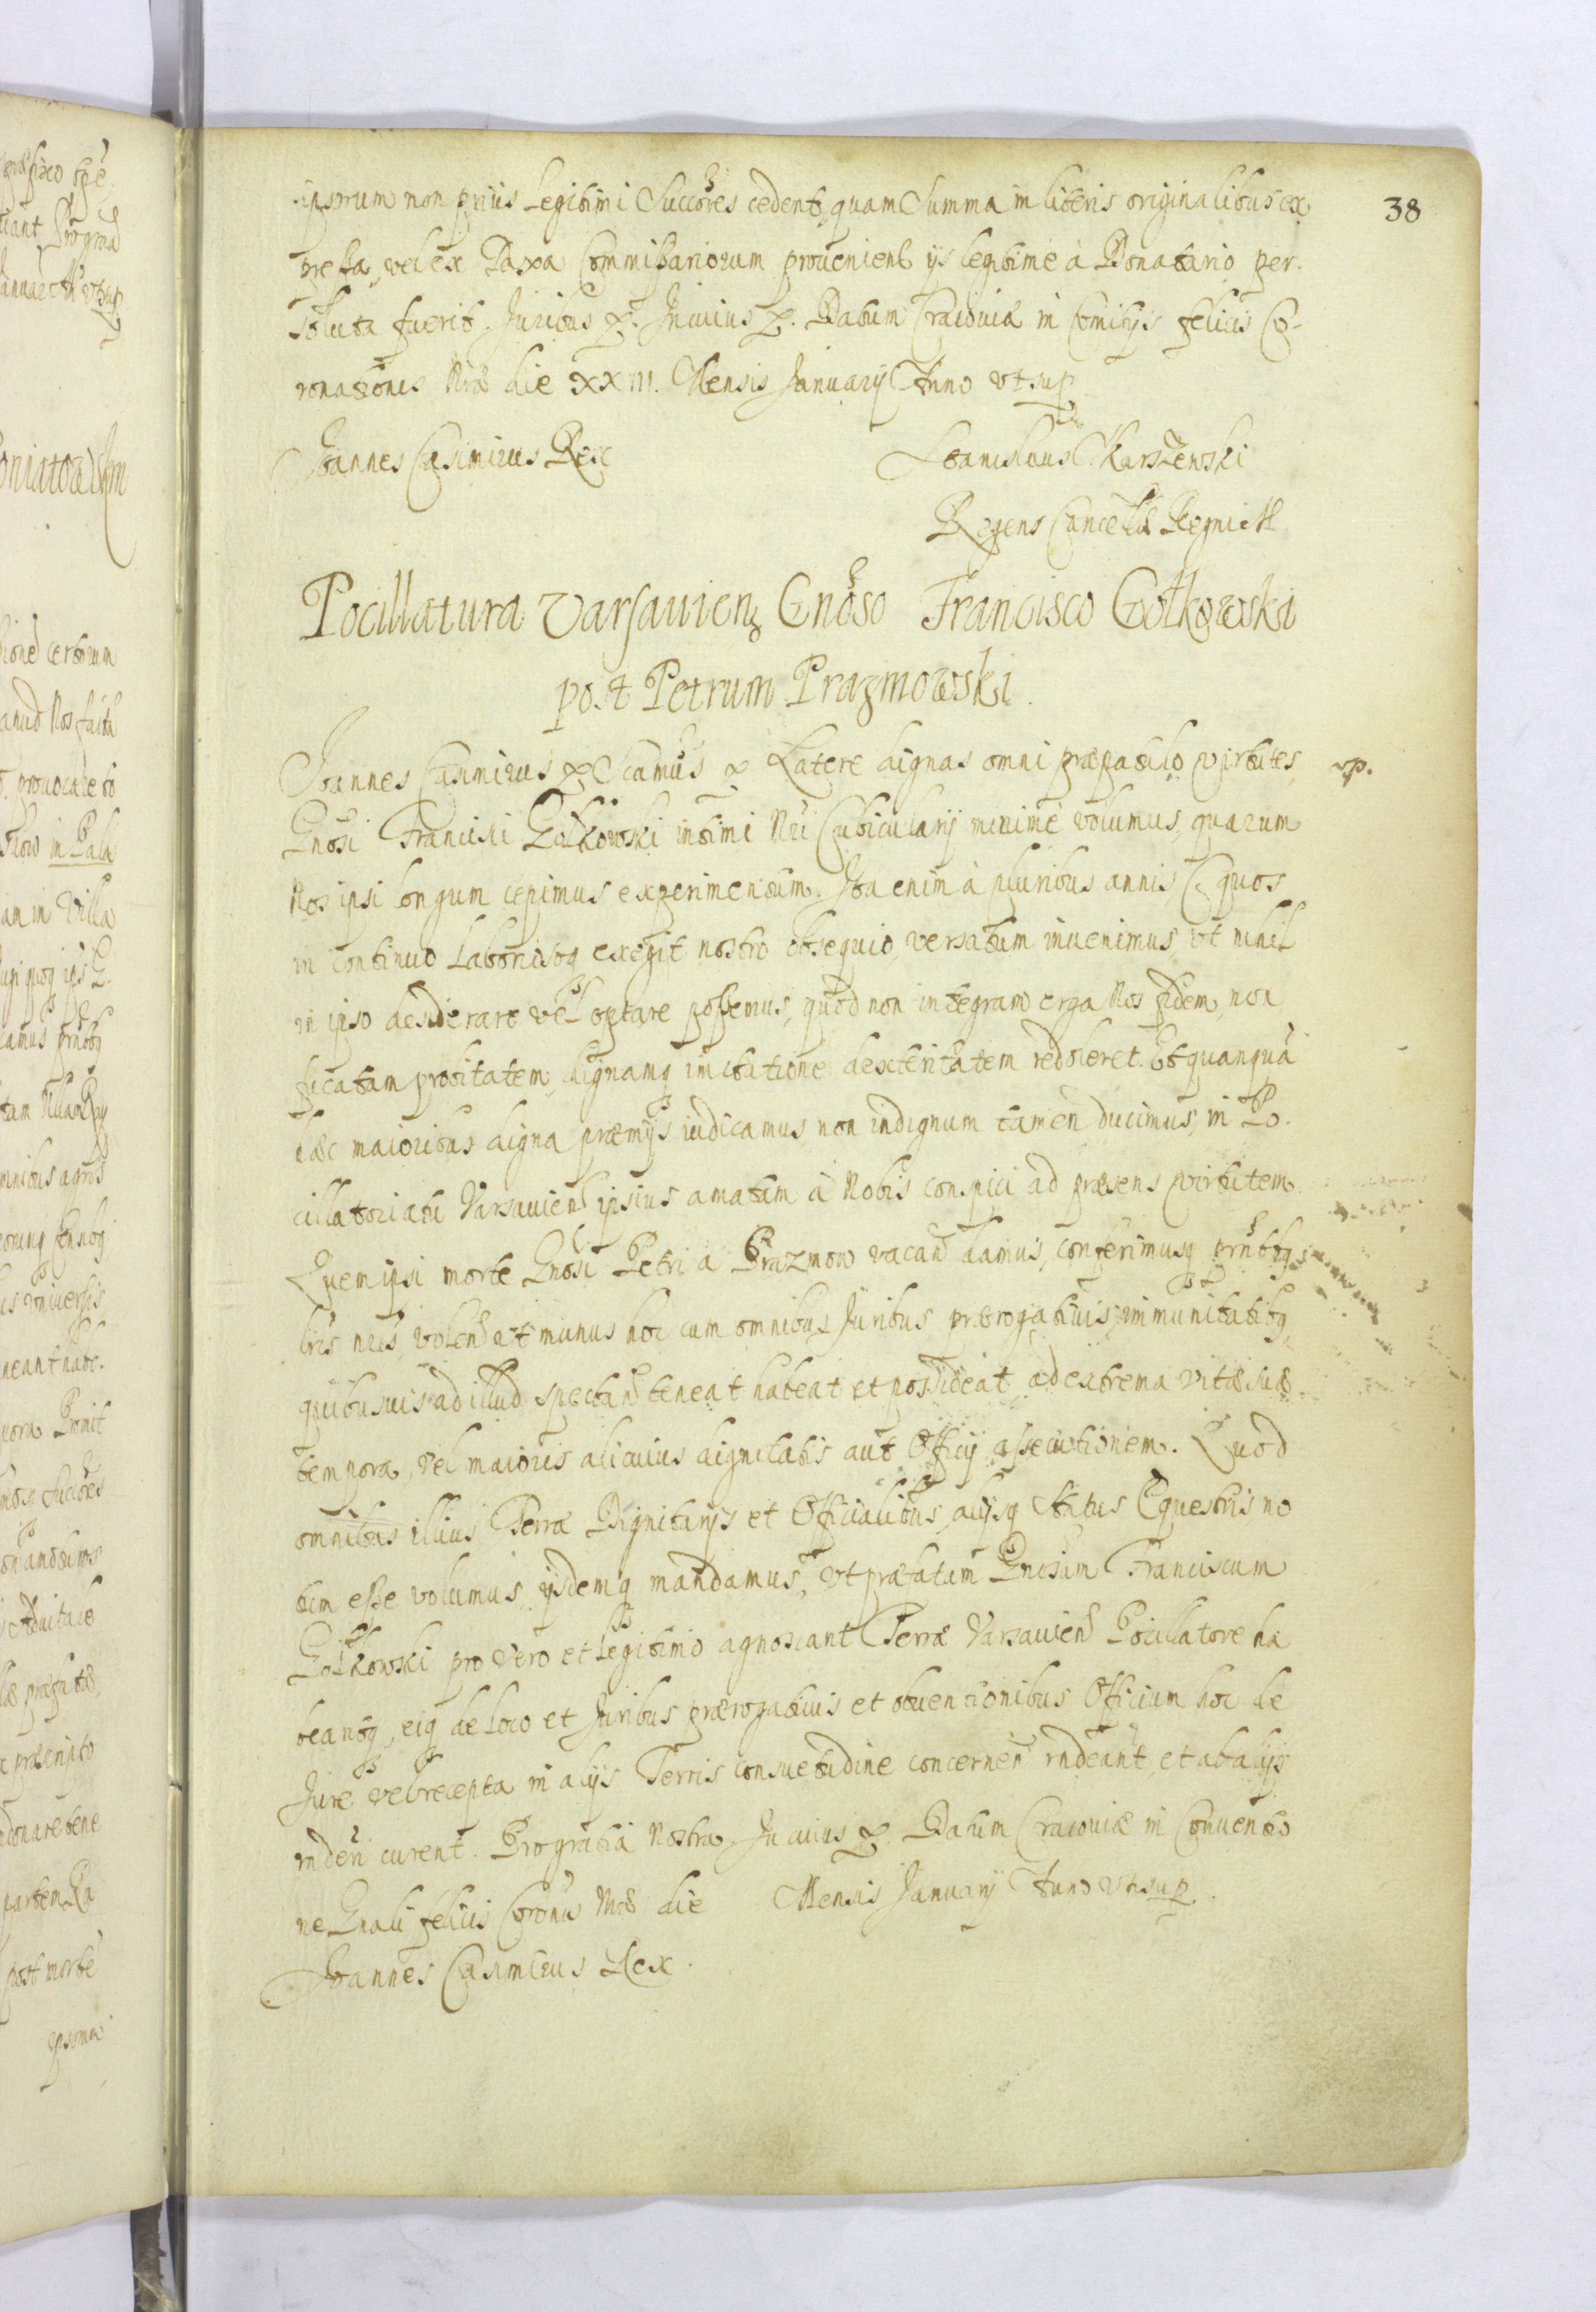 38
ipsorum non prius Legitimi Succõres cedent, quam Summa in literis originalibus ex
pressa, vel ex Taxa Commissariorum provenienś ijs legitime à Donatario per-
soluta fuerit. Juribus &. In cuius &. Datum Cracoviæ in Comitijs felicis Co-
ronationis Nræ die XXIII. Mensis Januarij Anno vt sup
Joannes Casimirus Rex
Stanislaus Skarszewski
Regens Cancellæ Regni
Pocillatura Varsauien Gnõso Francisco Gołkowski
post Petrum Prazmowski
Joannes Casimirus & Sicamus & Latere dignas omni præpatulo virtutes
vp.
Gnõsi Francisci Gołkowski intimi Nri Cubicularij minime volumus, quarum
Nos ipsi longum cepimus experimentum. Ita enim à pluribus annis, quos
in continuo Laboriosoq exegit nostro obsequio, versatum inuenimus, vt nihil
in ipso desiderare vel optare possemus, quod non integram erga Nos fidem, non
fucatam probitatem, dignamq imitatione dexteritatem redoleret. Et quanquã
hæc maioribus digna præmijs iudicamus, non indignum tamen ducimus, in Po-
cillatoriatu Varsauien ipsius amatam à Nobis conspici ad præsens virtutem.
Quem ipsi morte Gnõsi Petri a Prazmow vacan damus, conferimusq prntibq
lris nris, volen vt munus hoc cum omnibus Juribus, prærogatiuis, immunitatibq,
quibusuis ad illud spectan teneat habeat et possideat, ad extrema vitæ suæ
tempora, vel maioris alicuius dignitatis aut Officij assecutionem. Quod
omnibus illius Terræ Dignitarijs et Officialibus, alijsq Status Equestris no
tum esse volumus, ijsdemq mandamus, vt præfatum Gnõsum Franciscum
Gołkowski pro vero et legitimo agnoscant Terræ Varsauien Pocillatore ha
beantq, eiq de loco et Juribus prærogatiuis et obuentionibus Officium hoc de
Jure vel recepta in alijs Terris consuetudine concernen rndeant, et ab alijs
rnderi curent. Pro gratia Nostra. In cuius & Datum Cracouiæ in Conuentio
ne Gnali felicis Corõnis Nræ die Mensis Januarij Anno vt sup.
Joannes Casimirus Rex.